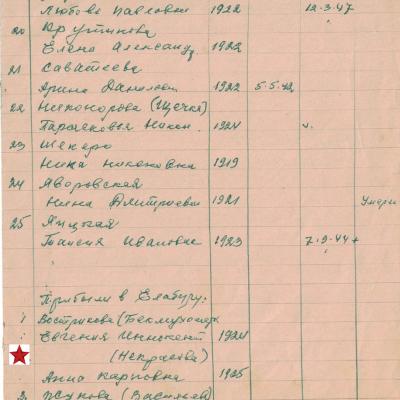 Любовь Павловн 1922 12.3.47
20 Крутикова
Елена Александ. 1922
21 Саватеева
Арина Данилов 1922 5.5.42
22 Никонорова (Щечка)
Парасковья Никон. 1924 v.
23 Шекеро
Нина Никоновна 1919
24 Яворовская
Нина Дмитриевн 1921 Умерл
25 Яицкая
Таисия Ивановне 1923 7.9.44 +
Прибыли в Елабугу:
1 Вострикова
Евгения Иннокент 1924
(Некрасова)
Анна Карповна 1925
2 Жукова